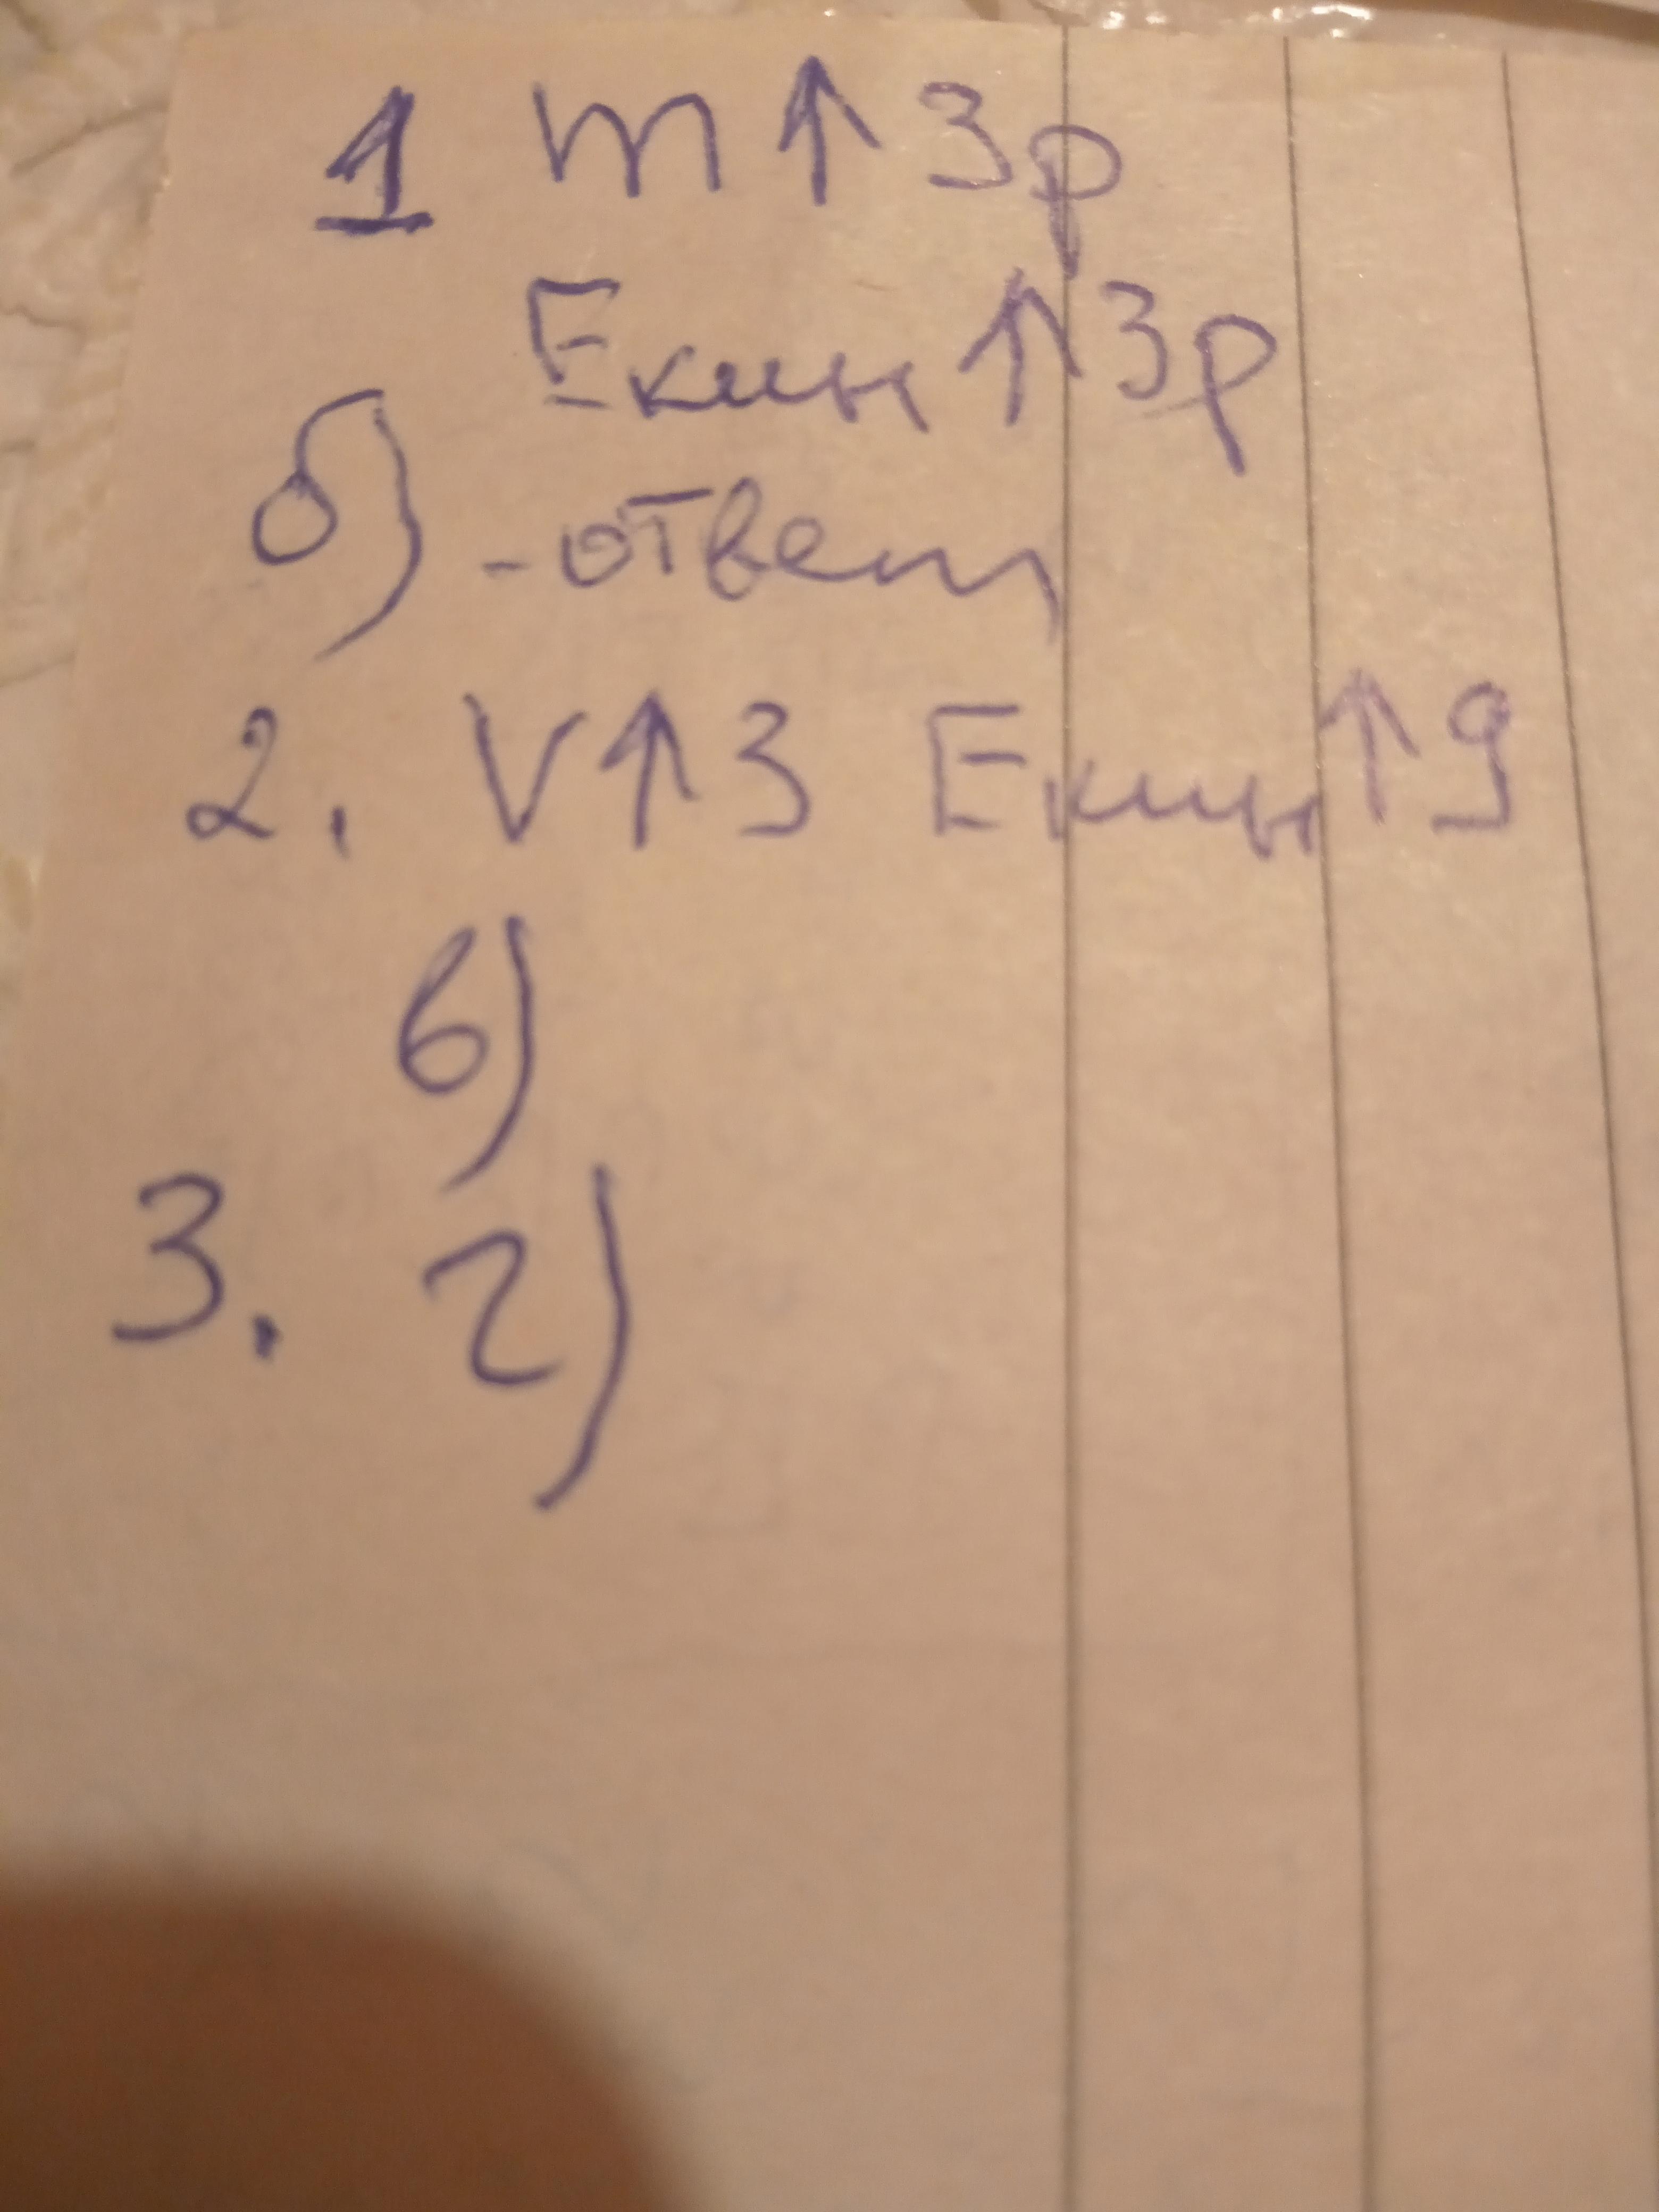 1 m↑3р
Eкин↑3р
б) - ответ
2. V↑3 Eкин↑9
в)
3. г)